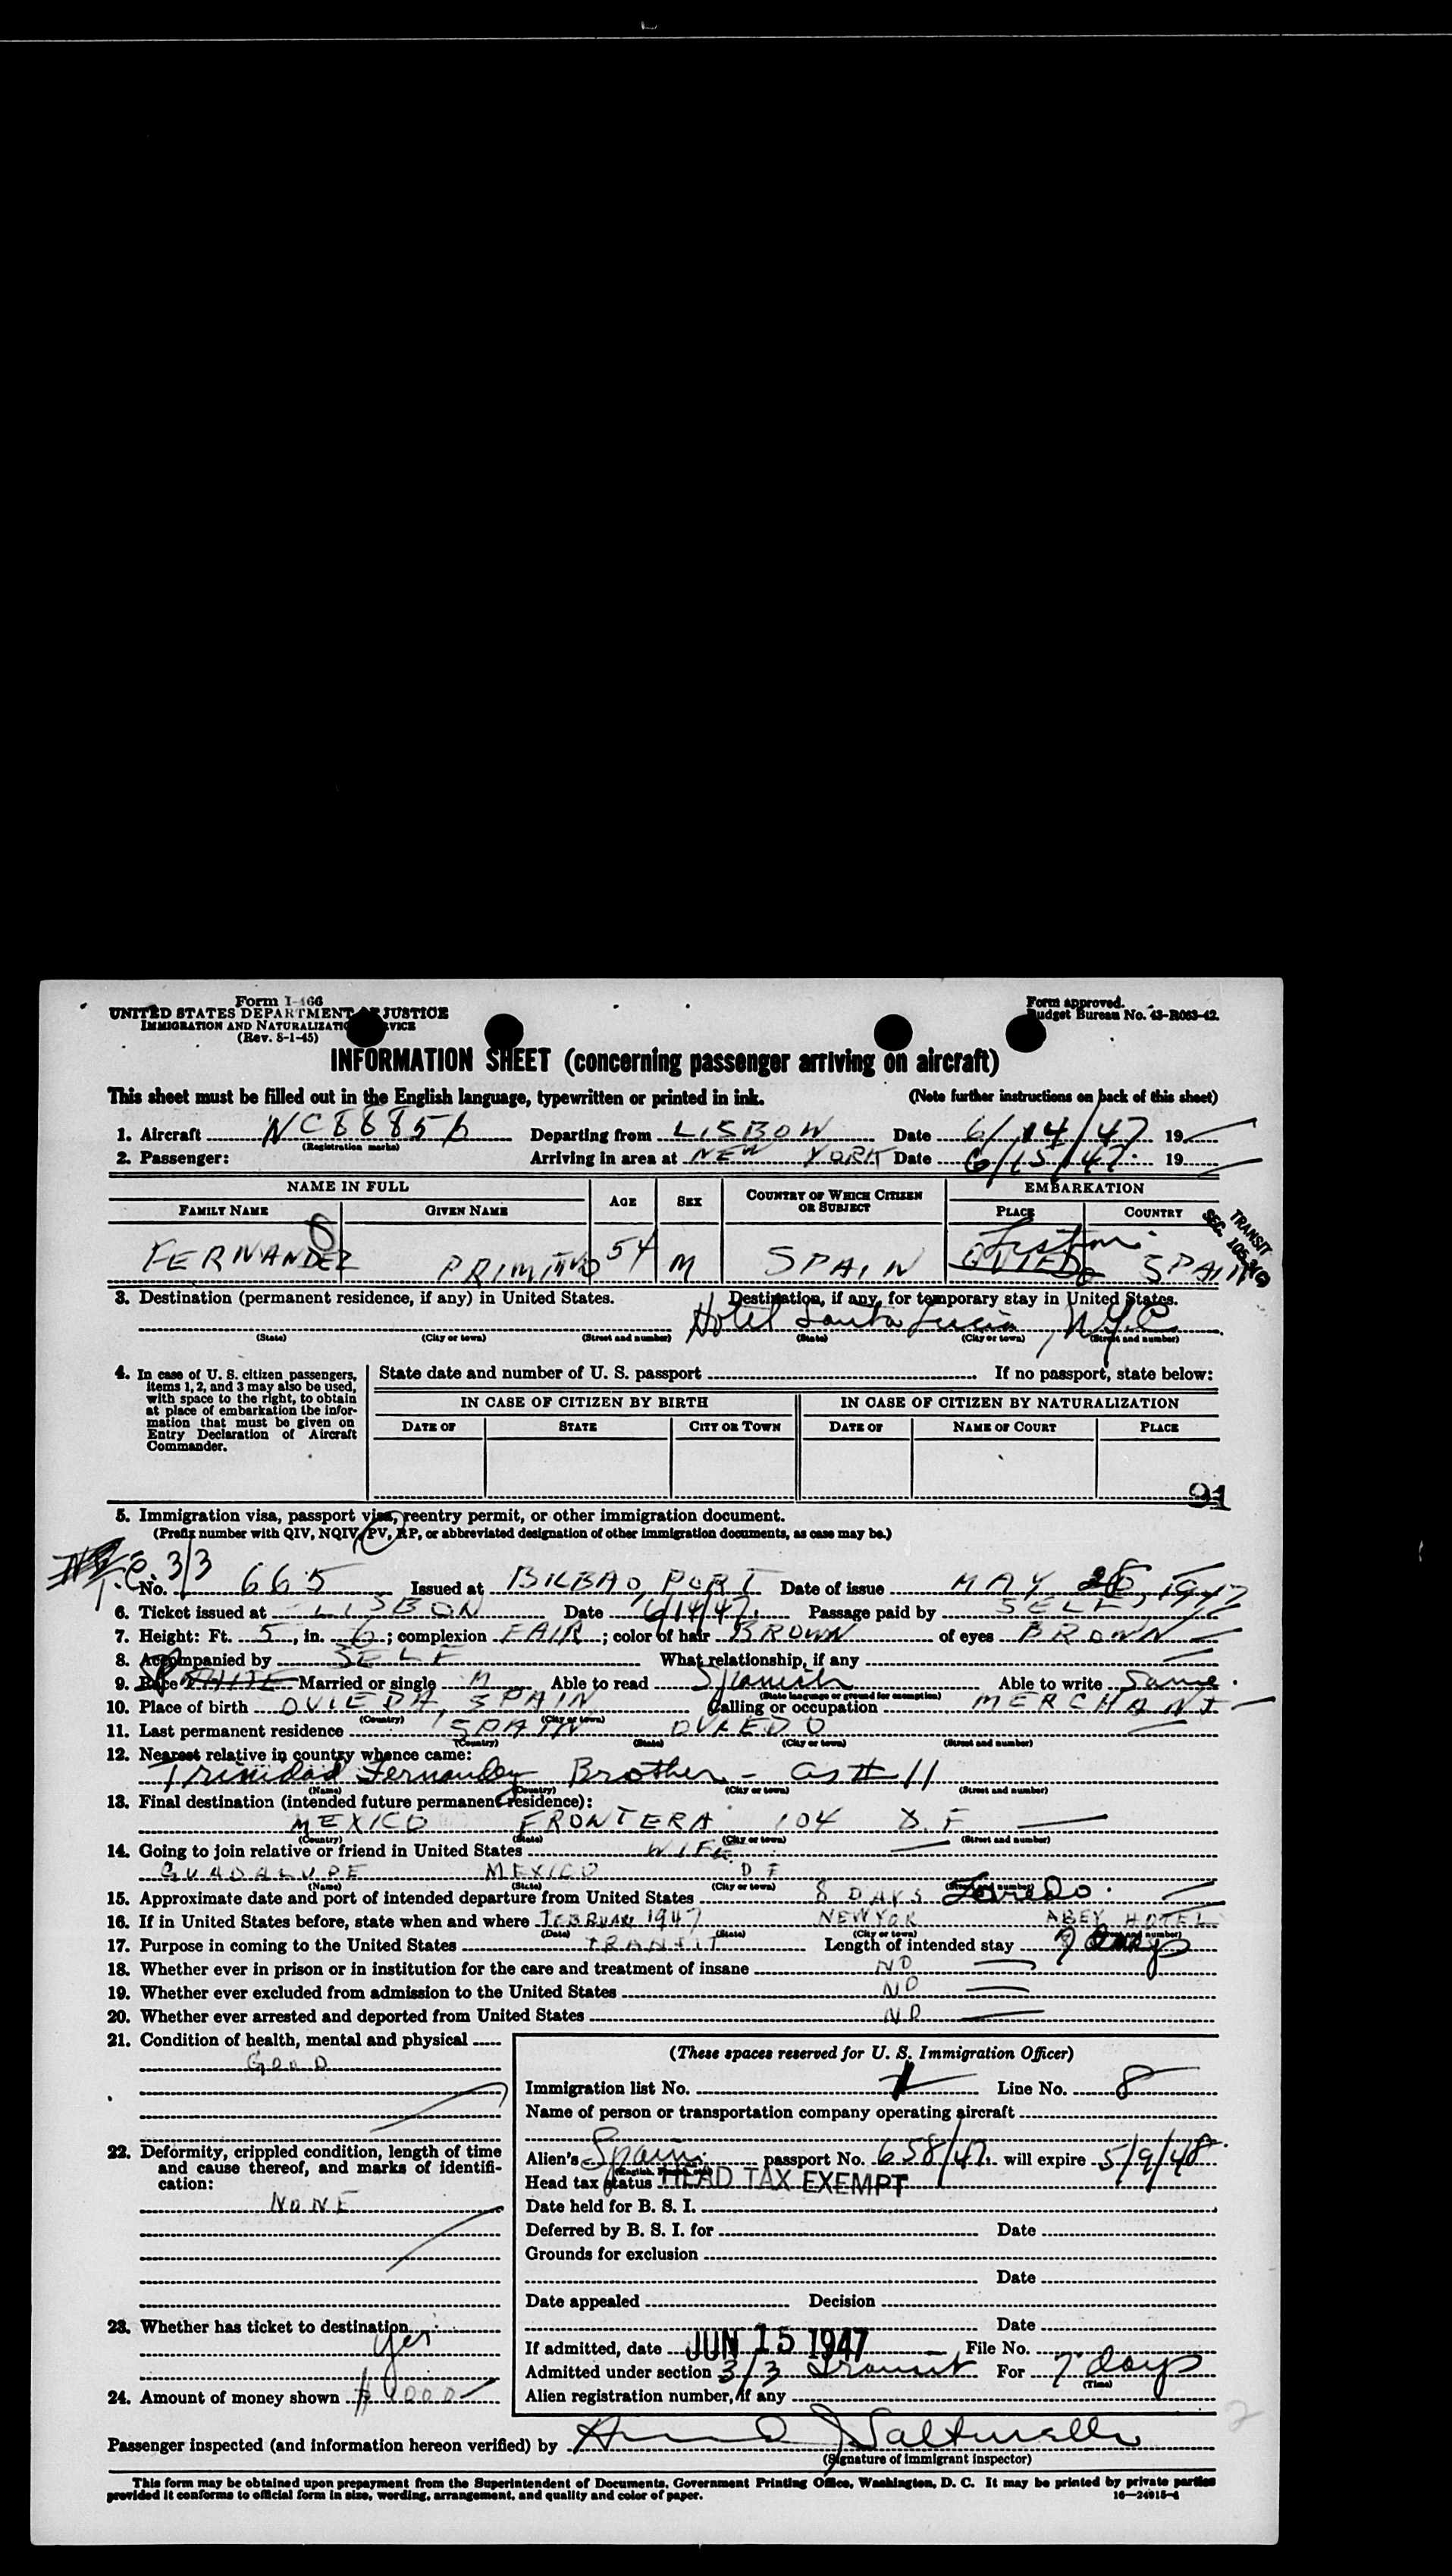 Form I-466
UNITED STATES DEPARTMENT OF JUSTICE
IMMIGRATION AND NATURALIZATION SERVICE
(Rev. 8-1-45)
Form approved.
Budget Bureau No. 43-R063-42.
INFORMATION SHEET (concerning passenger arriving on aircraft)
This sheet must be filled out in the English language, typewritten or printed in ink. (Note further instructions on back of this sheet)
1. Aircraft NC88856 Departing from LISBON Date 6/14/47 19
(Registration marks)
2. Passenger: Arriving in area at NEW YORK Date 6/15/47. 19
NAME IN FULL AGE SEX COUNTRY OF WHICH CITIZEN OR SUBJECT EMBARKATION
FAMILY NAME GIVEN NAME PLACE COUNTRY
TRANSIT
SEC. 105.3(3)
FERNANDEZ PRIMITIVO 54 M SPAIN OVIEDO Lisbon. SPAIN
3. Destination (permanent residence, if any) in United States. Destination, if any, for temporary stay in United States.
Hotel Santa Lucia, N.Y.C
(State) (City or town) (Street and number) (State) (City or town) (Street and number)
4. In case of U. S. citizen passengers, items 1, 2, and 3 may also be used, with space to the right, to obtain at place of embarkation the information that must be given on Entry Declaration of Aircraft Commander.
State date and number of U. S. passport If no passport, state below:
IN CASE OF CITIZEN BY BIRTH IN CASE OF CITIZEN BY NATURALIZATION
DATE OF STATE CITY OR TOWN DATE OF NAME OF COURT PLACE
91
5. Immigration visa, passport visa, reentry permit, or other immigration document.
(Prefix number with QIV, NQIV, PV, RP, or abbreviated designation of other immigration documents, as case may be.)
3/3
No. 665 Issued at BILBAO, PORT Date of issue MAY 26, 1947
6. Ticket issued at LISBON Date 6/14/47. Passage paid by SELF
7. Height: Ft. 5, in. 6; complexion FAIR; color of hair BROWN of eyes BROWN
8. Accompanied by SELF What relationship, if any
9. Race WHITE Married or single M Able to read Spanish Able to write Same.
(State language or ground for exemption)
10. Place of birth OVIEDA, SPAIN Calling or occupation MERCHANT
(Country) (City or town)
11. Last permanent residence SPAIN OVIEDO
(Country) (State) (City or town) (Street and number)
12. Nearest relative in country whence came:
Trinidad Fernandez Brother - as # 11
(Name) (Country) (City or town) (Street and number)
13. Final destination (intended future permanent residence):
MEXICO FRONTERA 104 D.F
(Country) (State) (City or town) (Street and number)
14. Going to join relative or friend in United States WIFE
GUADALUPE MEXICO D F
(Name) (State) (City or town) (Street and number)
15. Approximate date and port of intended departure from United States 8 DAYS Laredo.
16. If in United States before, state when and where FEBRUARY 1947 NEW YOR ABEY HOTEL
(Date) (State) (City or town) (Street and number)
17. Purpose in coming to the United States TRANSIT Length of intended stay 7 days
18. Whether ever in prison or in institution for the care and treatment of insane NO
19. Whether ever excluded from admission to the United States NO
20. Whether ever arrested and deported from United States NO
21. Condition of health, mental and physical
GOOD
22. Deformity, crippled condition, length of time and cause thereof, and marks of identification:
NONE
23. Whether has ticket to destination
Yes
24. Amount of money shown $ 1000
(These spaces reserved for U. S. Immigration Officer)
Immigration list No. 1 Line No. 8
Name of person or transportation company operating aircraft
Alien's Spain passport No. 658/47. will expire 5/9/48.
Head tax status HEAD TAX EXEMPT
Date held for B. S. I.
Deferred by B. S. I. for Date
Grounds for exclusion
Date
Date appealed Decision
Date
If admitted, date JUN 15 1947 File No.
Admitted under section 3/3 Transit For 7 days
(Time)
Alien registration number, if any
2
Passenger inspected (and information hereon verified) by
(Signature of immigrant inspector)
This form may be obtained upon prepayment from the Superintendent of Documents, Government Printing Office, Washington, D. C. It may be printed by private parties
provided it conforms to official form in size, wording, arrangement, and quality and color of paper. 16—24915-4